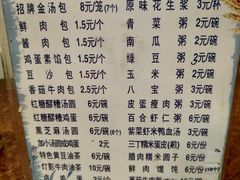 招牌金汤包 8元/笼(7个)
鲜肉包 1.5元/个
酱肉包 1.5元/个
鸡蛋素馅包 1.5元/个
豆沙包 1.5元/个
香菇牛肉包 2元/个
红糖醪糟汤圆 6元/碗
红糖醪糟鸡蛋 6元/碗
黑芝麻汤圆 6元/碗(8个)
加小汤圆或鸡蛋 3元/份
特色黄豆油茶 6元/碗
灯影牛肉油茶 10元/碗
原味花生浆 3元/杯
青菜粥 2元/碗
南瓜粥 2元/碗
绿豆粥 2元/碗
玉米粥 2元/碗
八宝粥 3元/碗
皮蛋瘦肉粥 3元/碗
百合虾仁粥 6元/碗
紫菜虾米鸭血汤 3元/碗
三丁糯米蛋皮(煎) 6元/碗
腊肉糯米圆子 6元/碗
鲜肉馄饨 6元/碗